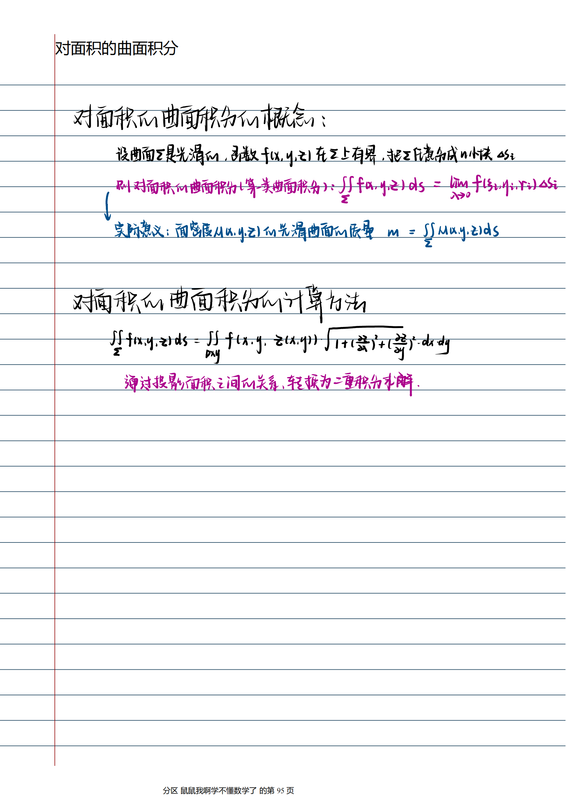 对面积的曲面积分
对面积的曲面积分的概念：
设曲面Σ是光滑的，函数 f(x,y,z) 在Σ上有界，把Σ任意分成n小块 ΔSi
则对面积的曲面积分(第一类曲面积分)：∬Σ f(x,y,z) ds = lim λ→0 f(ξi,ηi,γi) ΔSi
实际意义：面密度μ(x,y,z)的光滑曲面的质量 m = ∬Σ μ(x,y,z) ds
对面积的曲面积分的计算方法
∬Σ f(x,y,z) ds = ∬Dxy f(x,y, z(x,y)) √(1+(∂z/∂x)²+(∂z/∂y)²)·dx dy
通过投影面积之间的关系，转换为二重积分求解.
分区 鼠鼠我啊学不懂数学了 的第 95 页